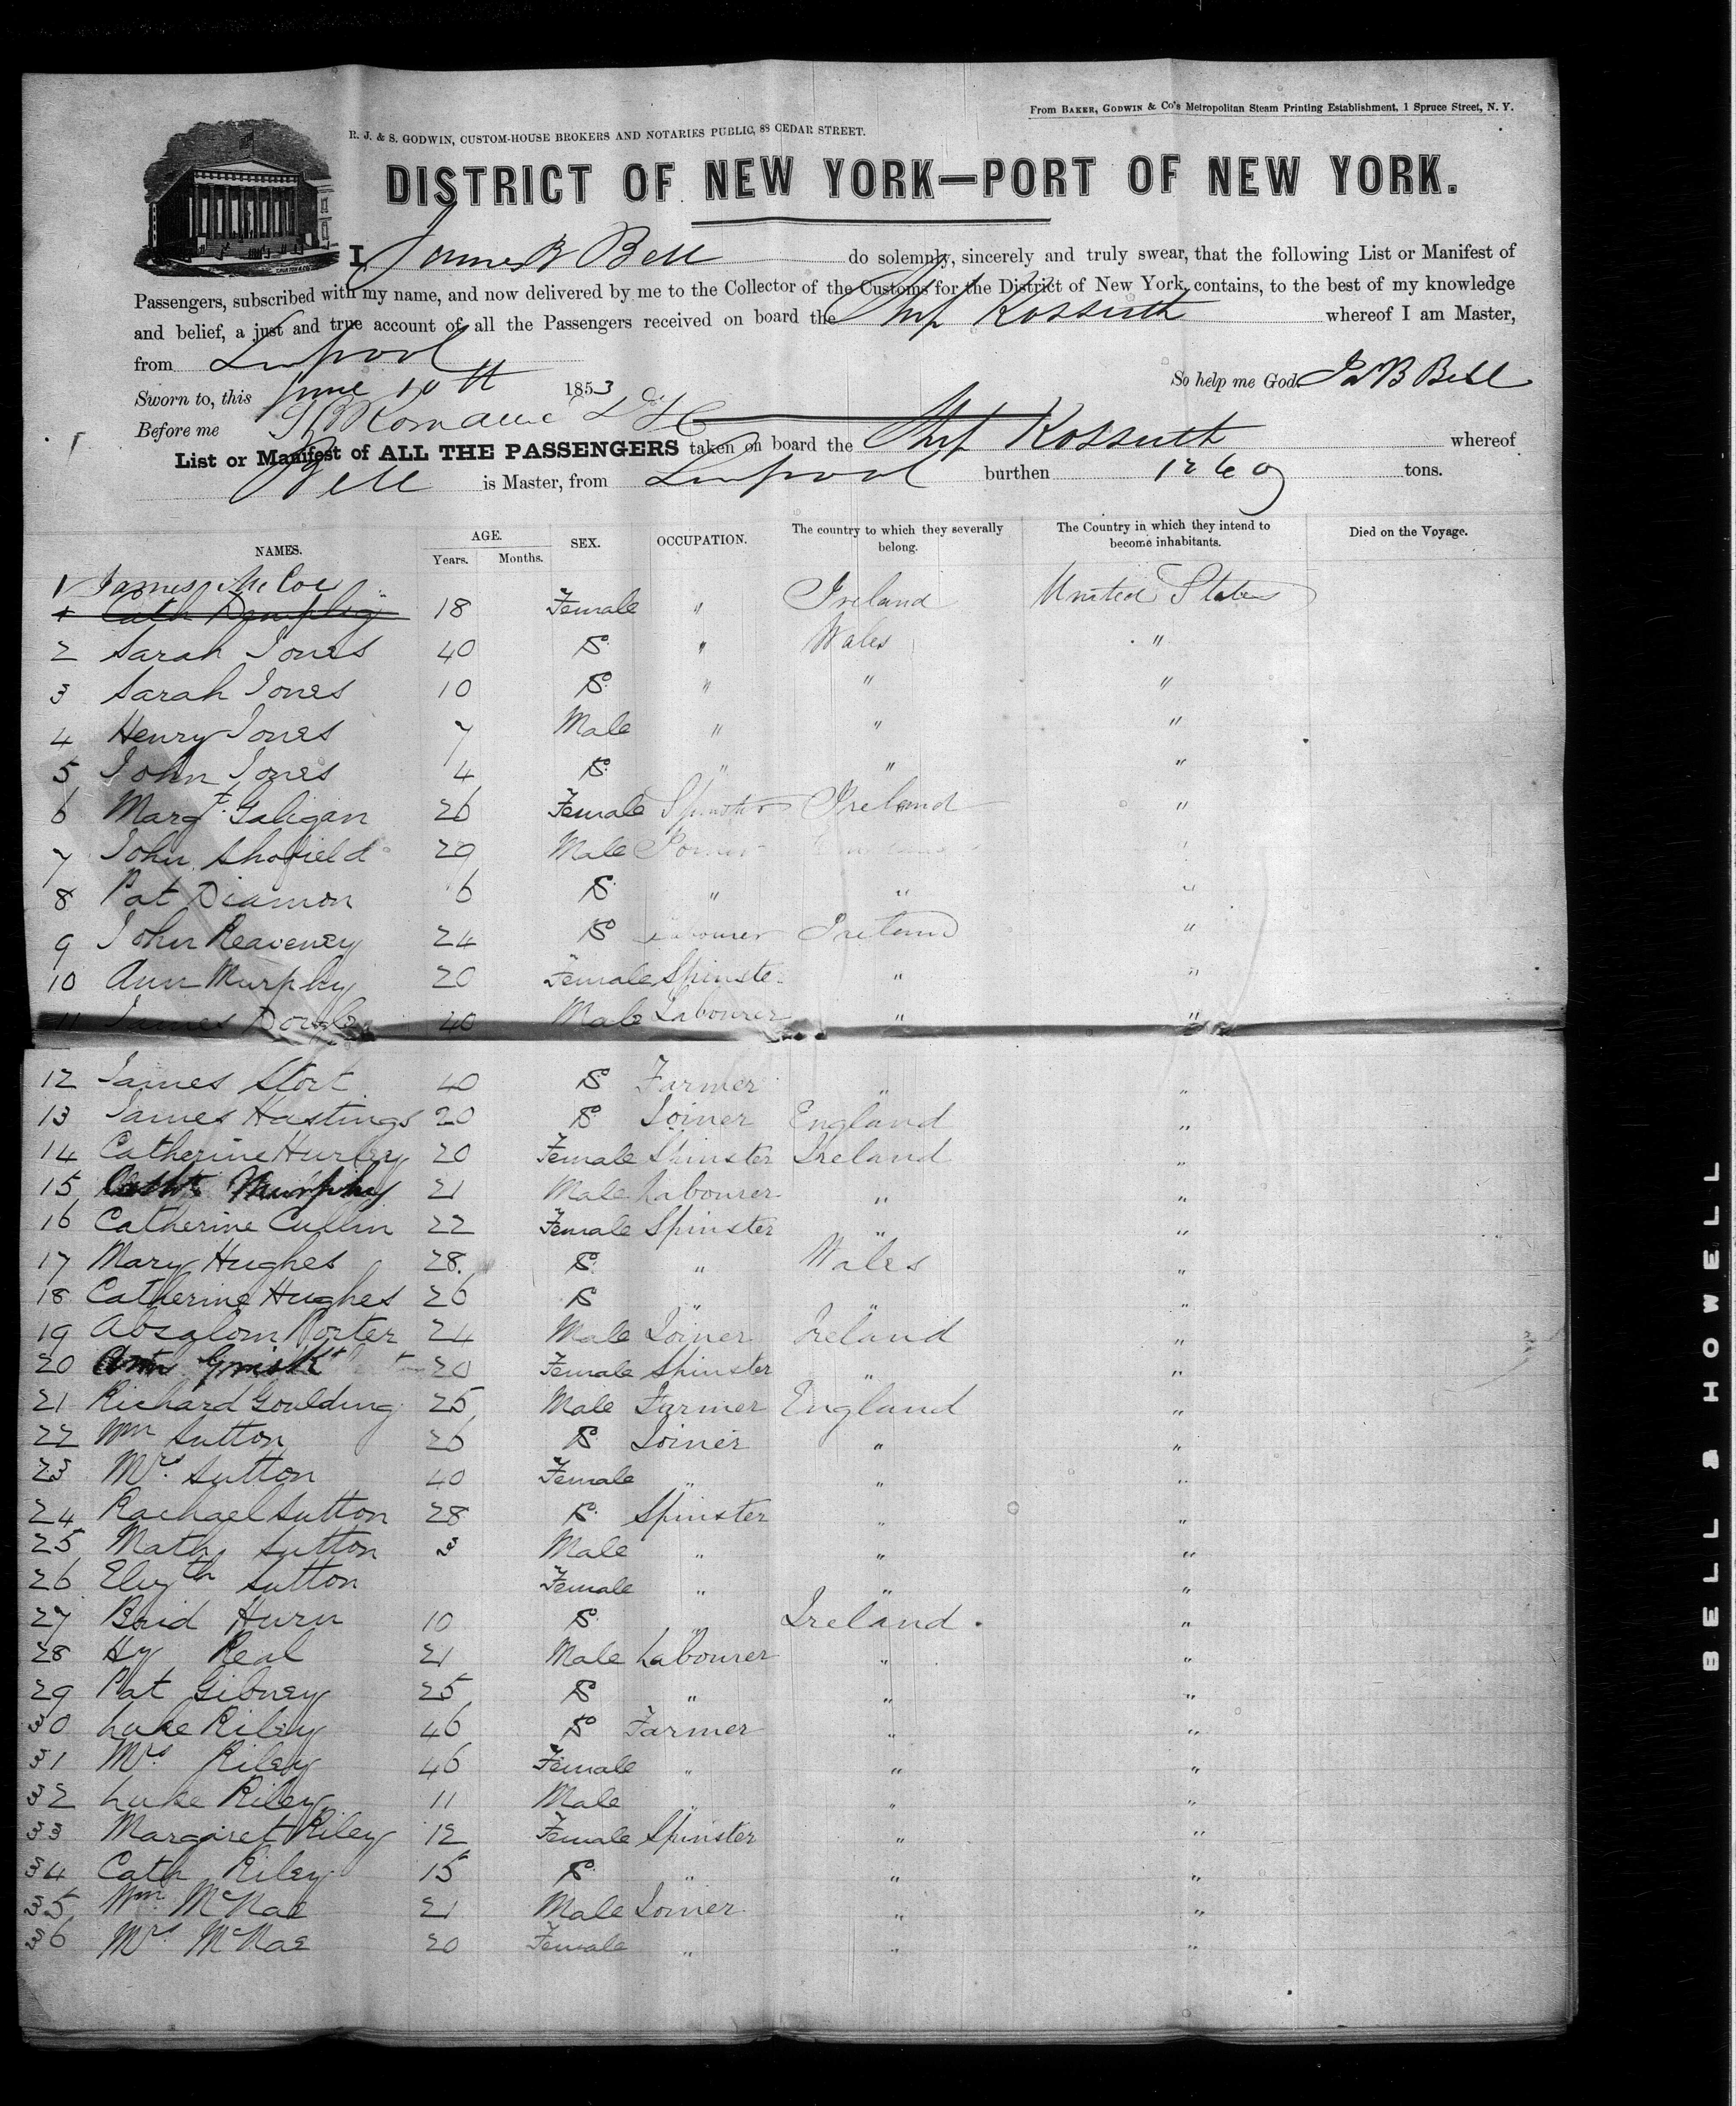 From BAKER, GODWIN & Co's Metropolitan Steam Printing Establishment, 1 Spruce Street, N. Y.
R. J. & S. GODWIN, CUSTOM-HOUSE BROKERS AND NOTARIES PUBLIC, 88 CEDAR STREET.
DISTRICT OF NEW YORK—PORT OF NEW YORK.
I, James B Bell do solemnly, sincerely and truly swear, that the following List or Manifest of
Passengers, subscribed with my name, and now delivered by me to the Collector of the Customs for the District of New York, contains, to the best of my knowledge
and belief, a just and true account of all the Passengers received on board the Ship Kossuth whereof I am Master,
from Liverpool
Sworn to, this June 10th 1853 So help me God. Ja B Bell
Before me
List or Manifest of ALL THE PASSENGERS taken on board the Ship Kossuth whereof
Bell is Master, from Liverpool burthen 1269 tons.
NAMES. AGE. Years. Months. SEX. OCCUPATION. The country to which they severally belong. The Country in which they intend to become inhabitants. Died on the Voyage.
1 James McCoe
1 Cath Dempsey 18 Female " Ireland United States
2 Sarah Jones 40 Do " Wales "
3 Sarah Jones 10 Do " " "
4 Henry Jones 7 Male " " "
5 John Jones 4 Do " " "
6 Margt Galigan 26 Female Spinster Ireland "
7 John Shofield 29 Male "
8 Pat Diamon 6 Do " " "
9 John Reaveney 24 Do Labourer Ireland "
10 Ann Murphy 20 Female Spinster " "
11 James Doyle 40 Male Labourer " "
12 James Stort 40 Do Farmer " "
13 James Hastings 20 Do Joiner England "
14 Catherine Hurley 20 Female Spinster Ireland "
15 Murphy 21 Male Labourer " "
16 Catherine Cullin 22 Female Spinster " "
17 Mary Hughes 28 Do " Wales "
18 Catherine Hughes 26 Do " " "
19 Absalom Porter 24 Male Joiner Ireland "
20 20 Female Spinster " "
21 Richard Goulding 25 Male Farmer England "
22 Wm Sutton 26 Do Joiner " "
23 Mrs. Sutton 40 Female " " "
24 Rachael Sutton 28 Do Spinster " "
25 Mathw Sutton 3 Male " " "
26 Elizth Sutton Female " " "
27 Brid Hurn 10 Do " Ireland "
28 Hy Real 21 Male Labourer " "
29 Pat Gibney 25 Do " " "
30 Luke Riley 46 Do Farmer " "
31 Mrs Riley 46 Female " " "
32 Luke Riley 11 Male " " "
33 Margaret Riley 12 Female Spinster " "
34 Cath Riley 15 Do " " "
35 Wm McNae 21 Male Joiner " "
36 Mrs McNae 20 Female " " "
BELL & HOWELL